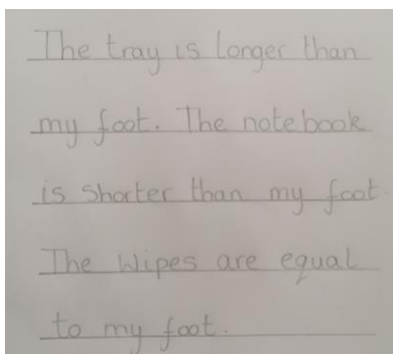 The tray is longer than
my foot. The notebook
is shorter than my foot.
The Wipes are equal
to my foot.